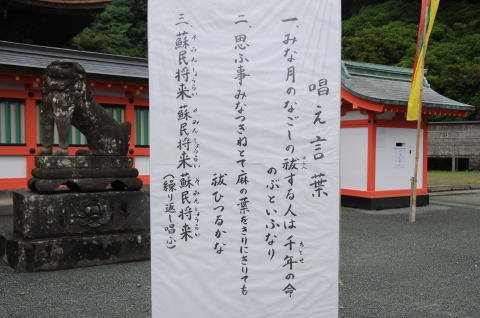 唱え言葉
一、みな月のなごしの祓する人は千年の命
のぶといふなり
二、思ふ事みなつきねとて麻の葉をきりにきりても
祓ひつるかな
三、蘇民将来 蘇民将来 蘇民将来
(繰り返し唱ふ)